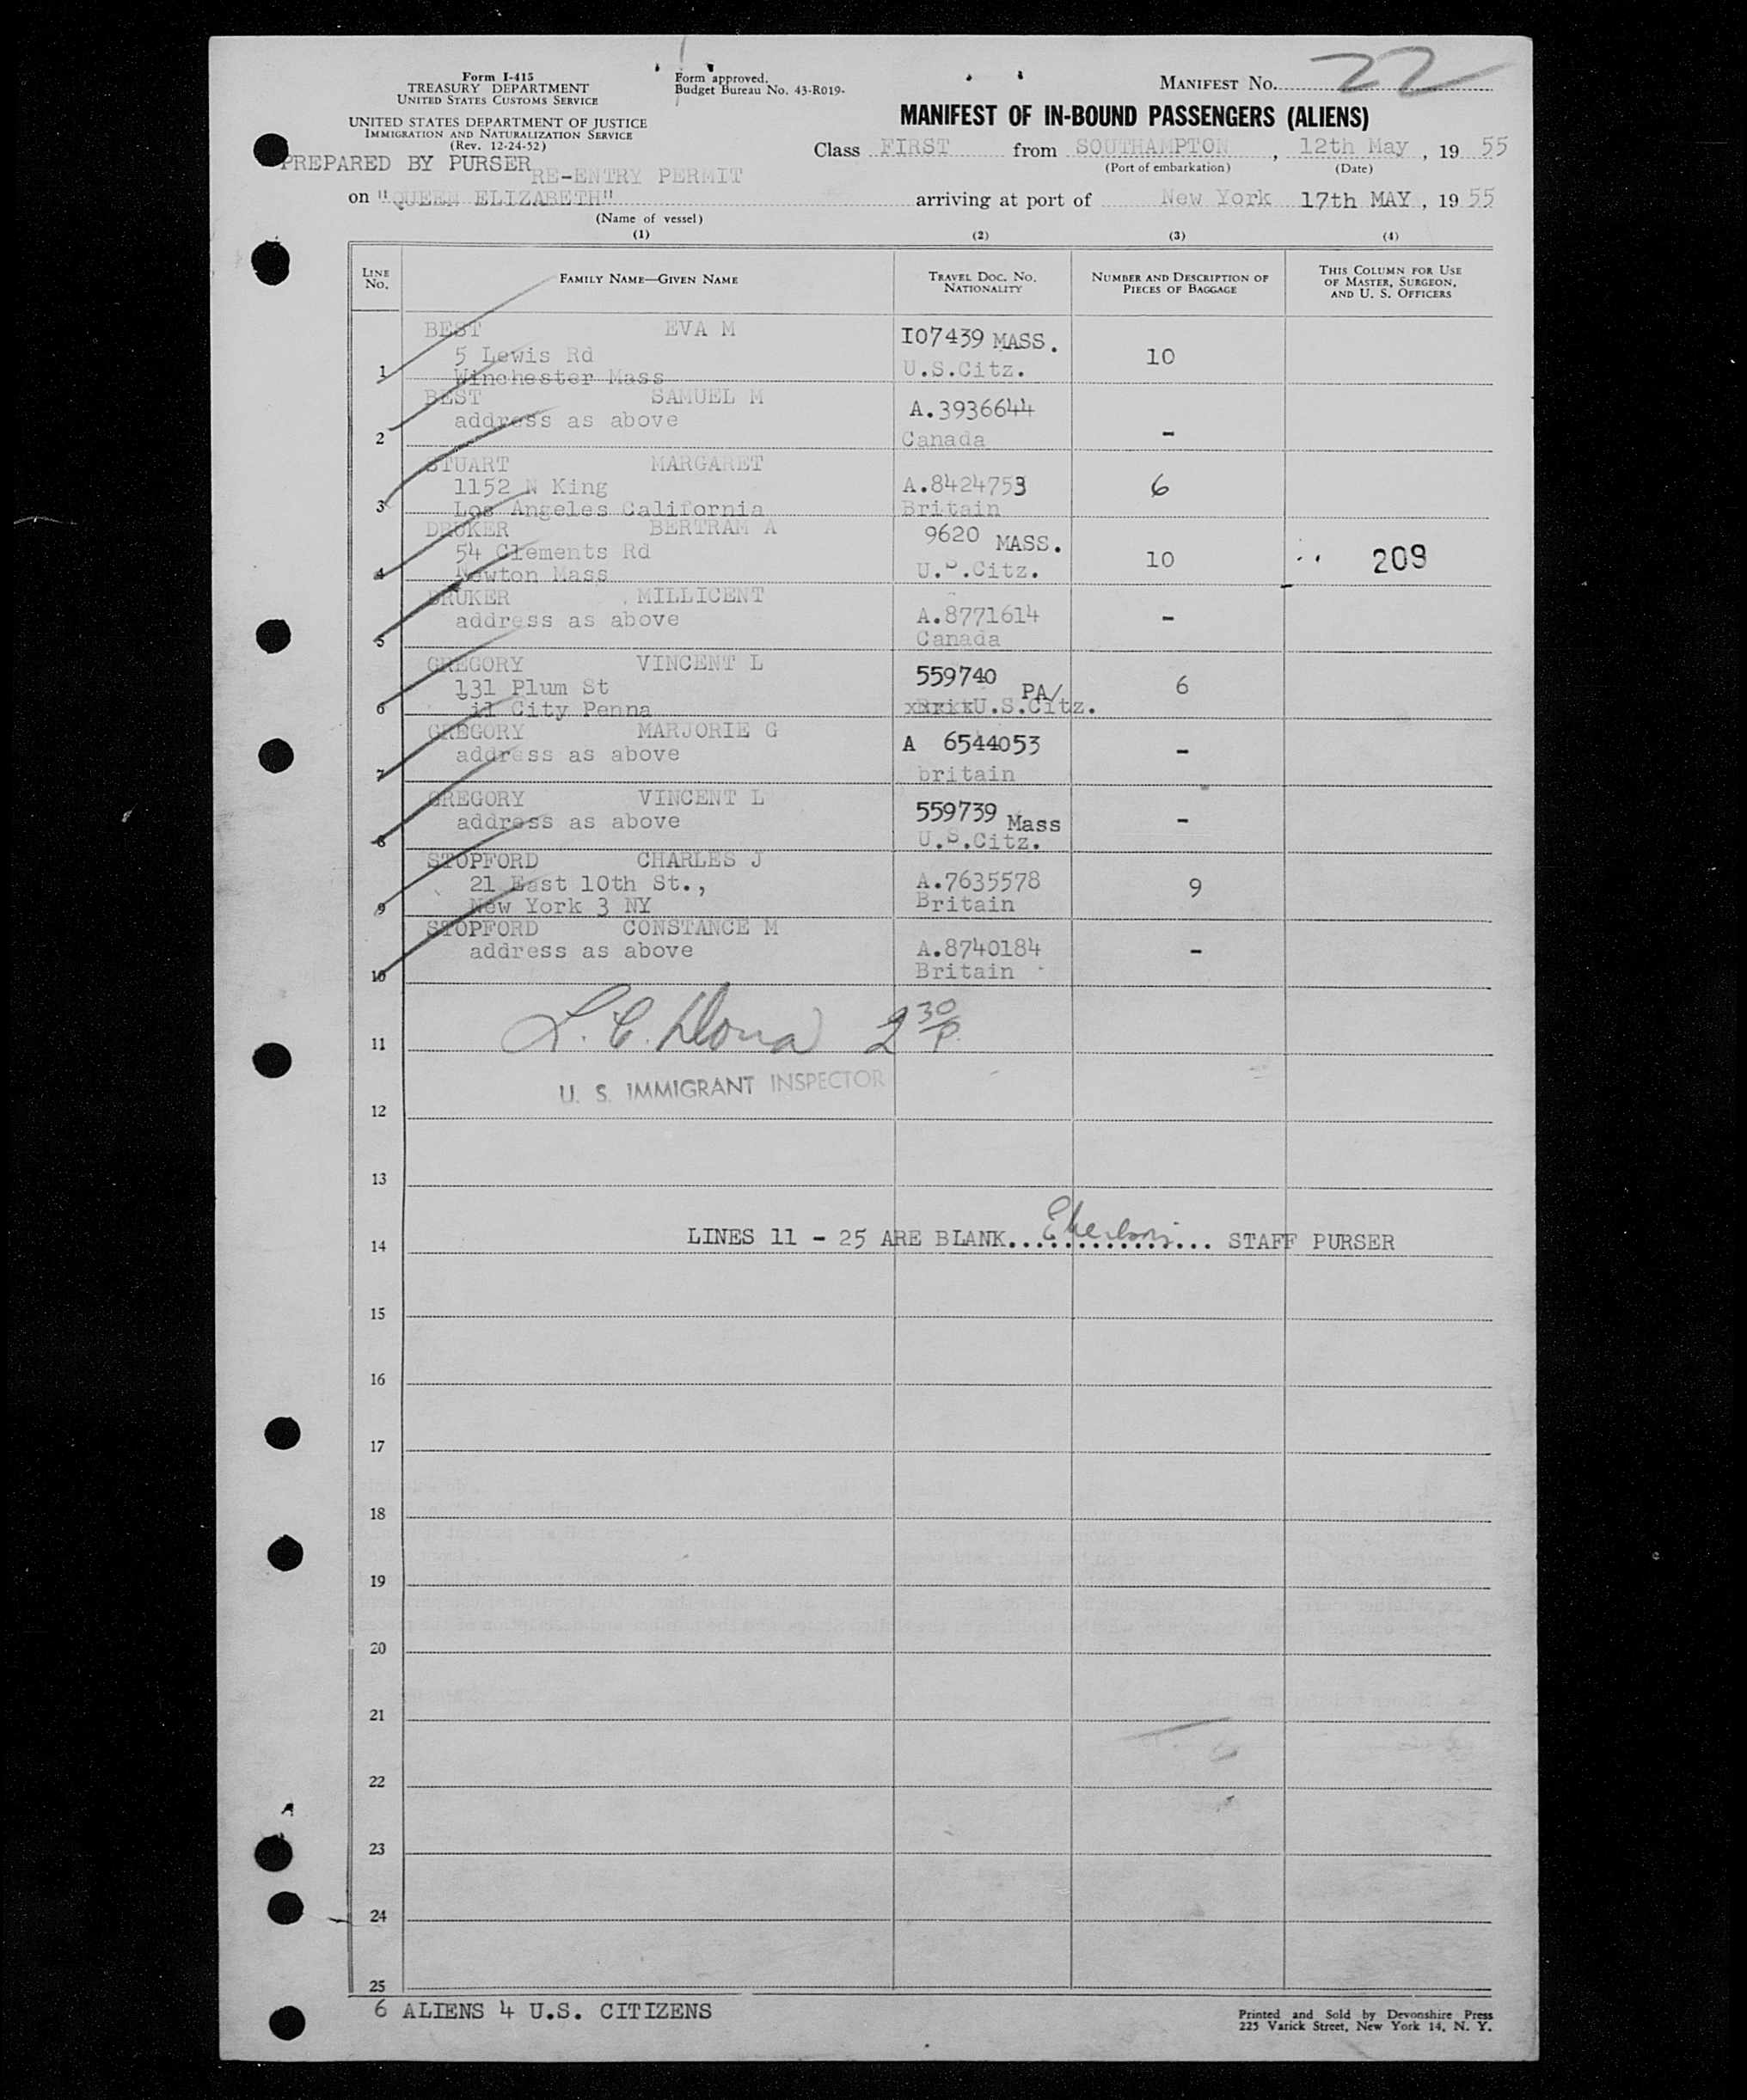 Form I-415
TREASURY DEPARTMENT
UNITED STATES CUSTOMS SERVICE
UNITED STATES DEPARTMENT OF JUSTICE
IMMIGRATION AND NATURALIZATION SERVICE
(Rev. 12-24-52)
Form approved.
Budget Bureau No. 43-R019-
MANIFEST No. 22
MANIFEST OF IN-BOUND PASSENGERS (ALIENS)
PREPARED BY PURSER
RE-ENTRY PERMIT
Class FIRST from SOUTHAMPTON, 12th May, 19 55
(Port of embarkation) (Date)
on "QUEEN ELIZABETH" arriving at port of New York 17th MAY, 19 55
(Name of vessel)
(1) (2) (3) (4)
LINE No. FAMILY NAME—GIVEN NAME TRAVEL DOC. NO. NATIONALITY NUMBER AND DESCRIPTION OF PIECES OF BAGGAGE THIS COLUMN FOR USE OF MASTER, SURGEON, AND U. S. OFFICERS
BEST EVA M I07439 MASS.
5 Lewis Rd 10
1 Winchester Mass U.S.Citz.
BEST SAMUEL M A.3936644
address as above -
2 Canada
STUART MARGARET
1152 N King A.8424753 6
3 Los Angeles California Britain
DRUKER BERTRAM A 9620 MASS.
54 Clements Rd 10 209
4 Newton Mass U.S.Citz.
DRUKER MILLICENT A.8771614
address as above -
5 Canada
GREGORY VINCENT L 559740 PA/
131 Plum St 6
6 il City Penna xBrixxU.S.Citz.
GREGORY MARJORIE G A 6544053
address as above -
7 britain
GREGORY VINCENT L 559739 Mass
address as above -
8 U.S.Citz.
STOPFORD CHARLES J
21 East 10th St., A.7635578 9
9 New York 3 NY Britain
STOPFORD CONSTANCE M
address as above A.8740184 -
10 Britain
11 L. C. Dona 2 30 P.
U. S. IMMIGRANT INSPECTOR
12
13
LINES 11 - 25 ARE BLANK.............. STAFF PURSER
14
15
16
17
18
19
20
21
22
23
24
25
6 ALIENS 4 U.S. CITIZENS
Printed and Sold by Devonshire Press
225 Varick Street, New York 14, N. Y.